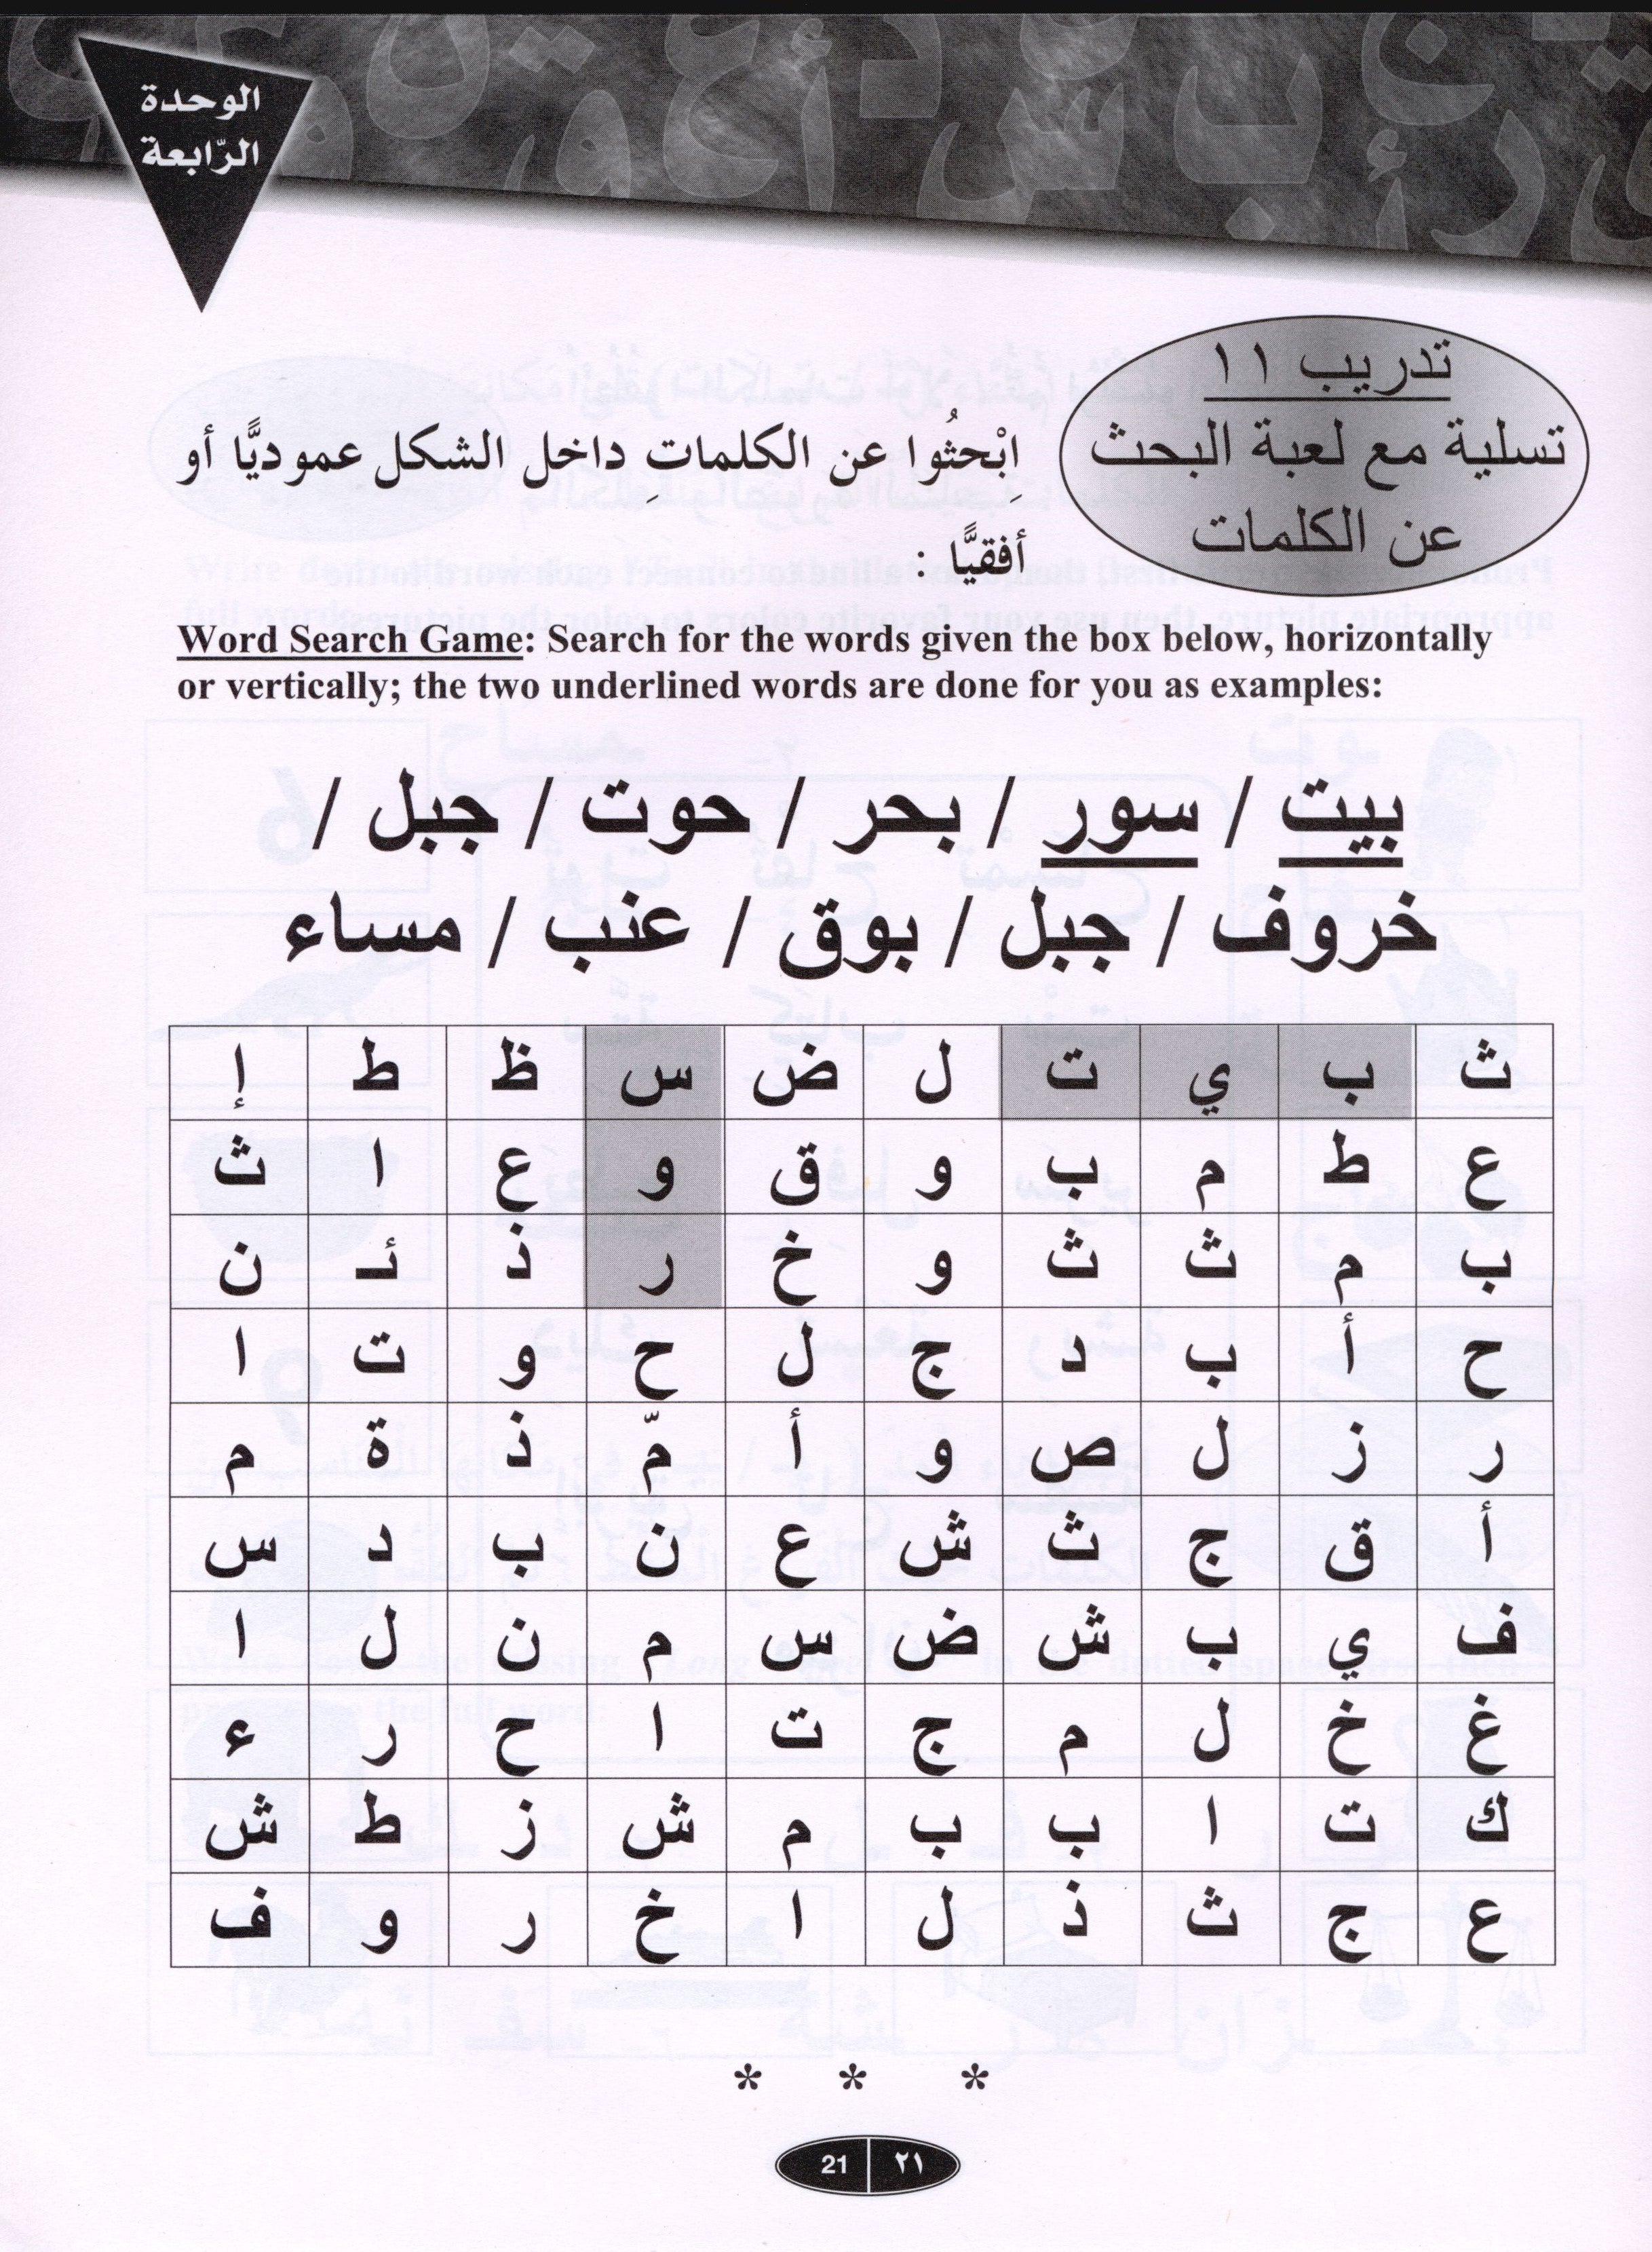 الوحدة
الرّابعة
تدريب ١١
تسلية مع لعبة البحث
عن الكلمات
اِبْحثُوا عن الكلماتِ داخل الشكل عموديًّا أو
أفقيًّا :
Word Search Game: Search for the words given the box below, horizontally
or vertically; the two underlined words are done for you as examples:
بيت / سور / بحر / حوت / جبل /
خروف / جبل / بوق / عنب / مساء
ث ب ي ت ل ض س ظ ط إ
ع ط م ب و ق و ع ا ث
ب م ث ث و خ ر ذ ئـ ن
ح أ ب د ج ل ح و ت ا
ر ز ل ص و أ مّ ذ ة م
أ ق ج ث ش ع ن ب د س
ف ي ب ش ض س م ن ل ا
غ خ ل م ج ت ا ح ر ء
ك ت ا ب ب م ش ز ط ش
ع ج ث ذ ل ا خ ر و ف
* * *
21 ٢١